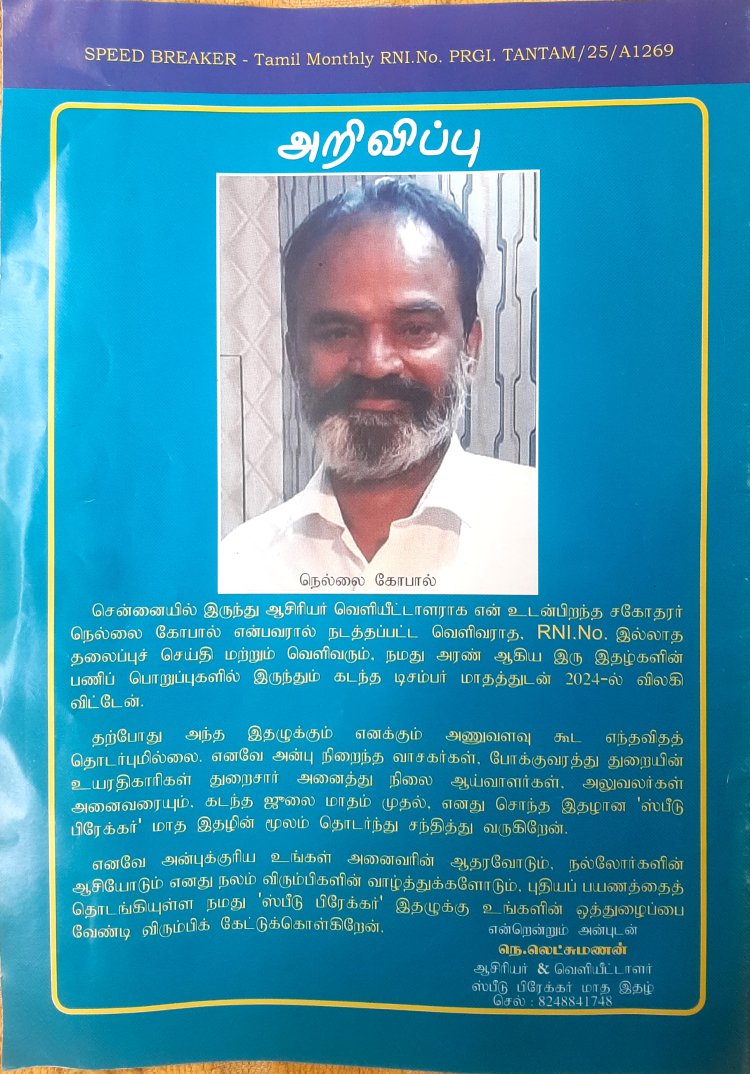 SPEED BREAKER - Tamil Monthly RNI.No. PRGI. TANTAM/25/A1269
அறிவிப்பு
நெல்லை கோபால்
சென்னையில் இருந்து ஆசிரியர் வெளியீட்டாளராக என் உடன்பிறந்த சகோதரர்
நெல்லை கோபால் என்பவரால் நடத்தப்பட்ட வெளிவராத, RNI.No. இல்லாத
தலைப்புச் செய்தி மற்றும் வெளிவரும், நமது அரண் ஆகிய இரு இதழ்களின்
பணிப் பொறுப்புகளில் இருந்தும் கடந்த டிசம்பர் மாதத்துடன் 2024-ல் விலகி
விட்டேன்.
தற்போது அந்த இதழுக்கும் எனக்கும் அணுவளவு கூட எந்தவிதத்
தொடர்புமில்லை. எனவே அன்பு நிறைந்த வாசகர்கள், போக்குவரத்து துறையின்
உயரதிகாரிகள் துறைசார் அனைத்து நிலை ஆய்வாளர்கள், அலுவலர்கள்
அனைவரையும், கடந்த ஜுலை மாதம் முதல், எனது சொந்த இதழான 'ஸ்பீடு
பிரேக்கர்' மாத இதழின் மூலம் தொடர்ந்து சந்தித்து வருகிறேன்.
எனவே அன்புக்குரிய உங்கள் அனைவரின் ஆதரவோடும், நல்லோர்களின்
ஆசியோடும் எனது நலம் விரும்பிகளின் வாழ்த்துக்களோடும், புதியப் பயணத்தைத்
தொடங்கியுள்ள நமது 'ஸ்பீடு பிரேக்கர்' இதழுக்கு உங்களின் ஒத்துழைப்பை
வேண்டி விரும்பிக் கேட்டுக்கொள்கிறேன்.
என்றென்றும் அன்புடன்
நெ.லெட்சுமணன்
ஆசிரியர் & வெளியீட்டாளர்
ஸ்பீடு பிரேக்கர் மாத இதழ்
செல் : 8248841748